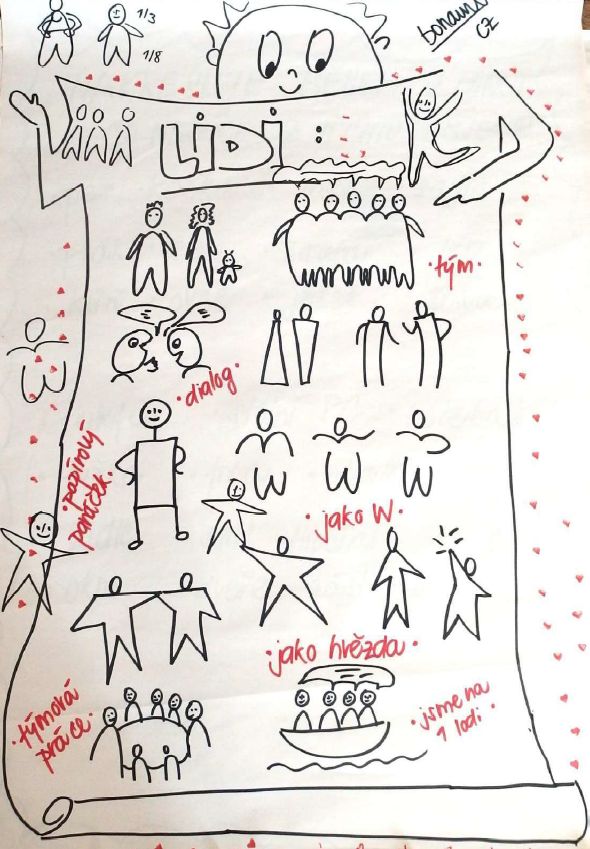 1/3
1/8
bonami
CZ
LIDI:
·tým·
·dialog·
·papírový
panáček·
·jako W·
·jako hvězda·
·týmová
práce·
·jsme na
1 lodi·